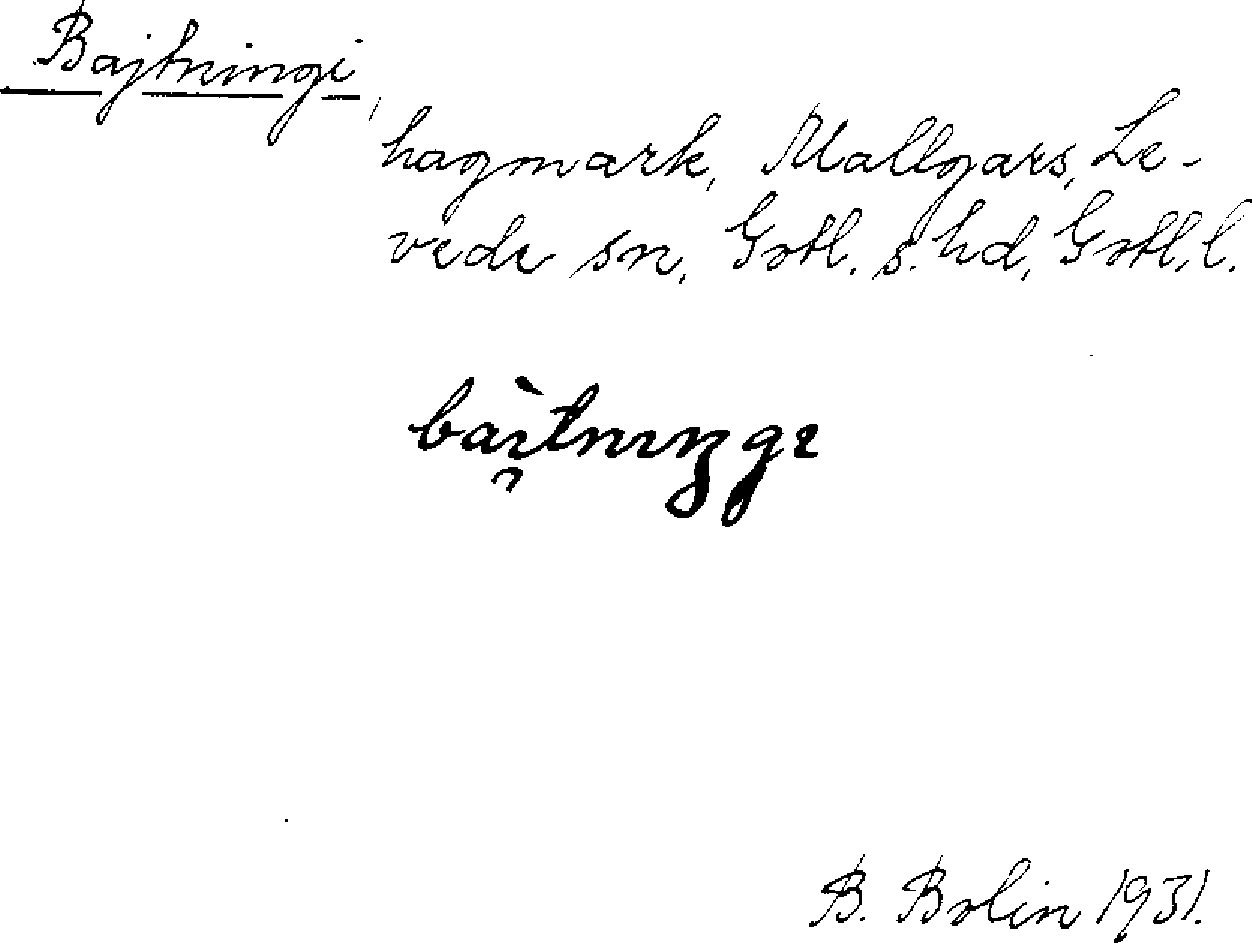 Bajtningi,
hagmark, Mallgars, Le-
vede sn, Gotl. s. hd, Gotl. l.
bài̯tnɪŋgɪ
B. Bolin 1931.